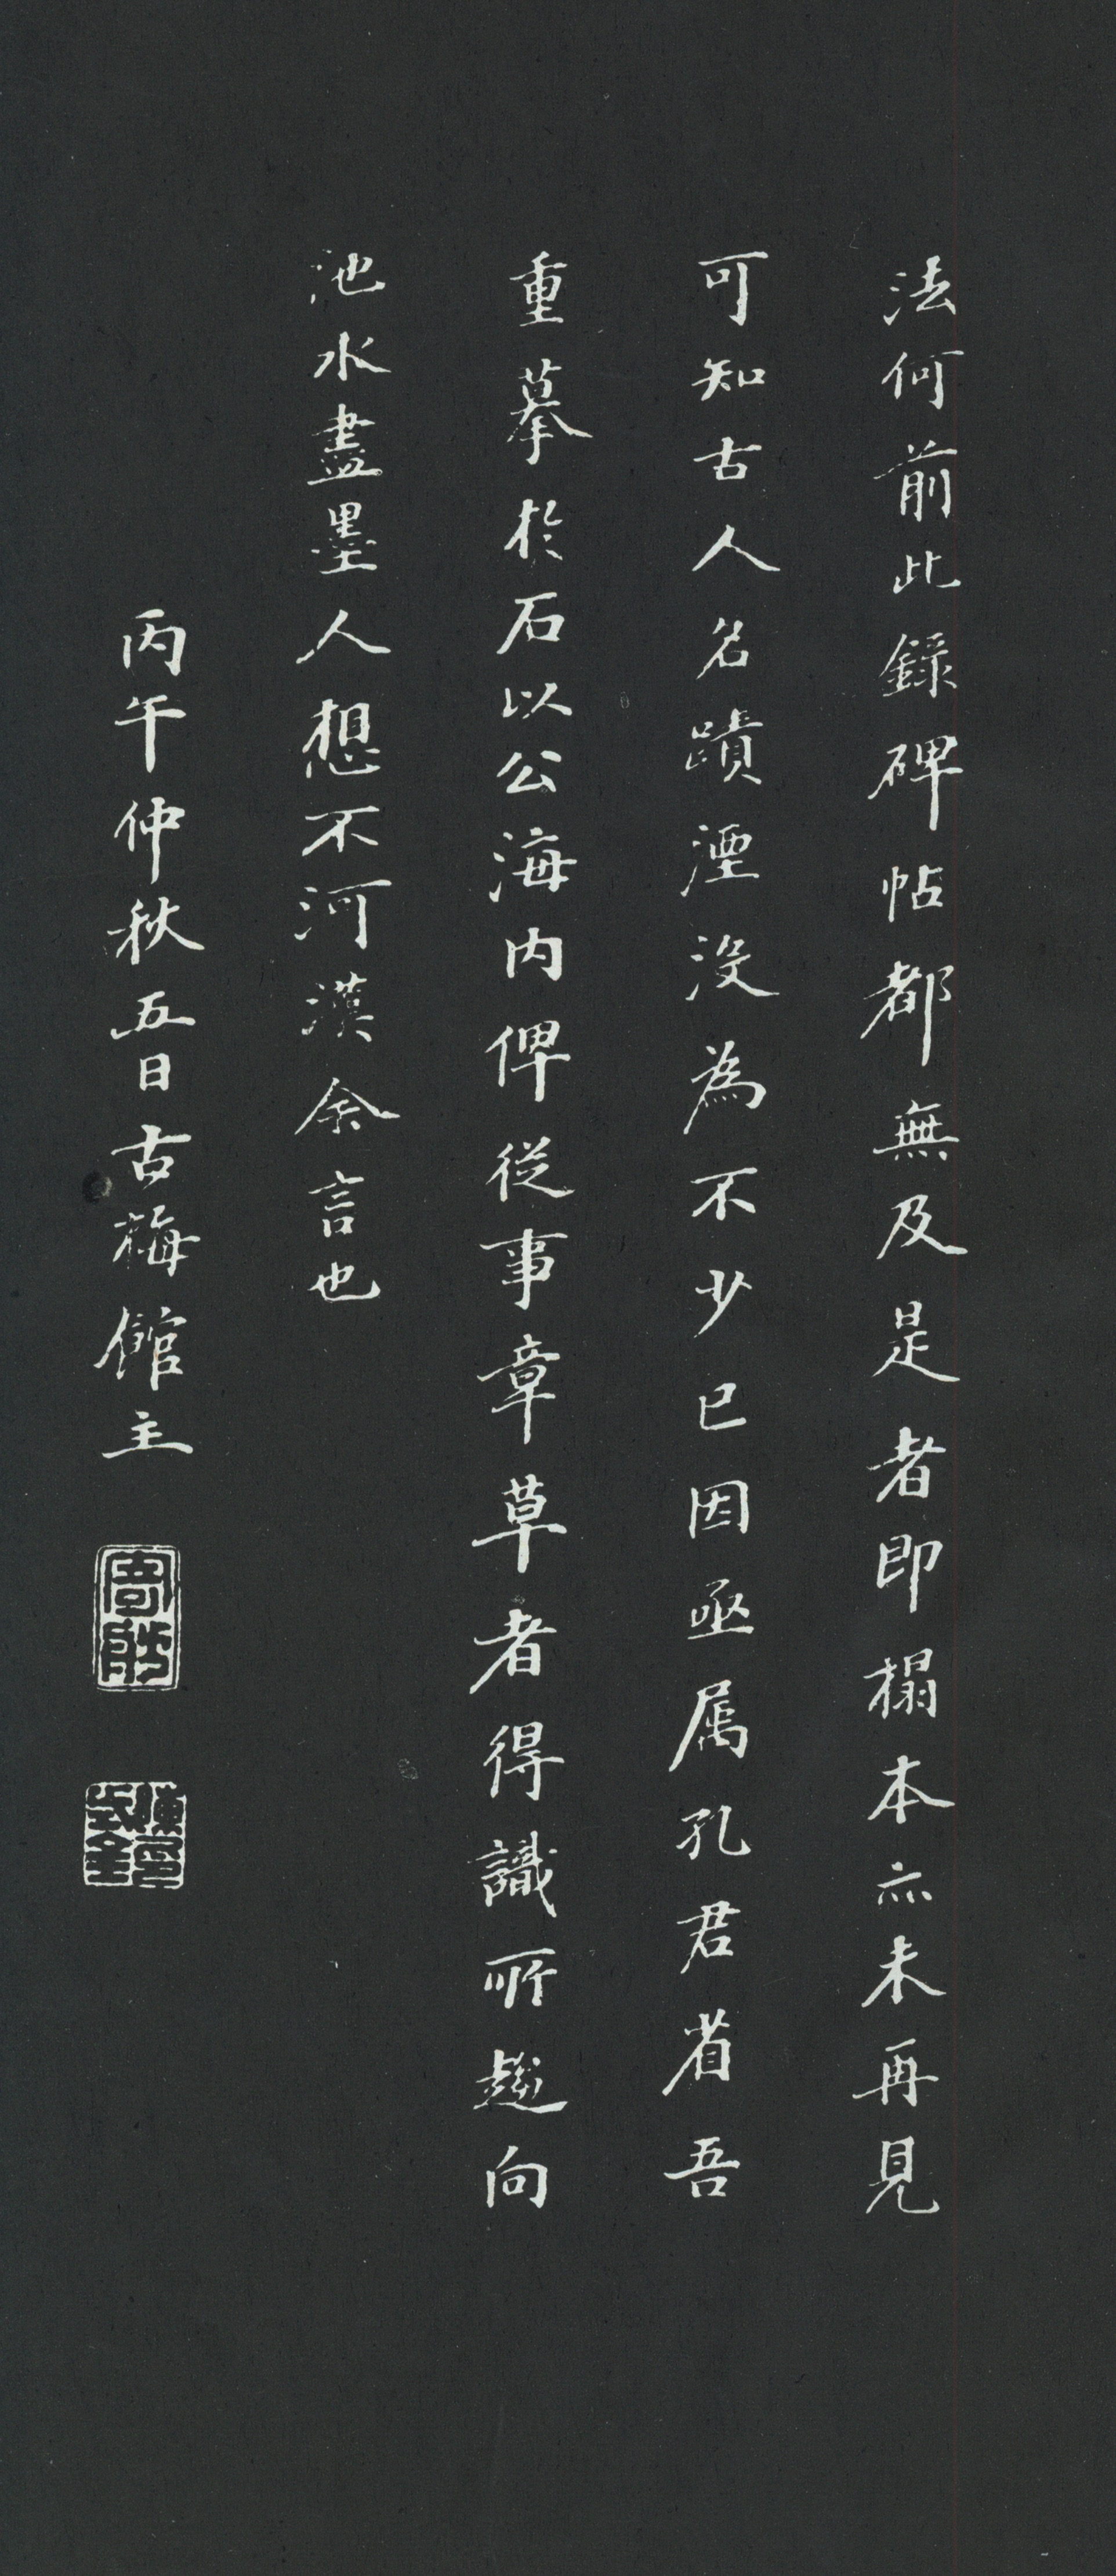 法何前此錄碑帖都無及是者即榻本亦未再見
可知古人名蹟湮沒為不少已因亟属孔君省吾
重摹於石以公海内俾從事章草者得識所趨向
池水盡墨人想不河漢余言也
丙午仲秋五日古梅館主